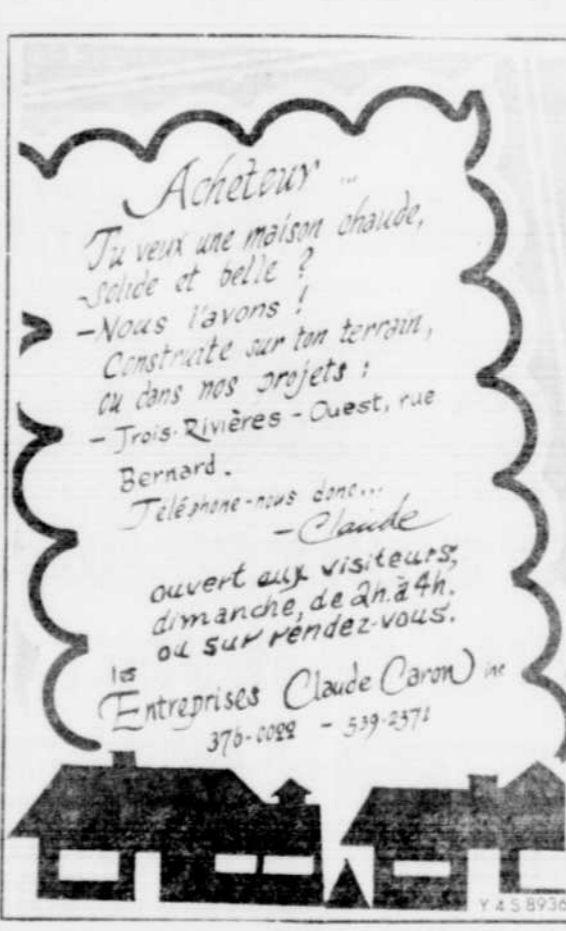 Acheteur ...
Tu veux une maison chaude,
-solide et belle ?
-Nous l'avons !
Construite sur ton terrain,
ou dans nos projets :
- Trois-Rivières - Ouest, rue
Bernard.
Téléphone-nous donc...
- Claude
ouvert aux visiteurs,
dimanche, de 2h. à 4h.
ou sur rendez-vous.
les
Entreprises Claude Caron inc
376-0022 - 539-2371
Y 4 S 8936